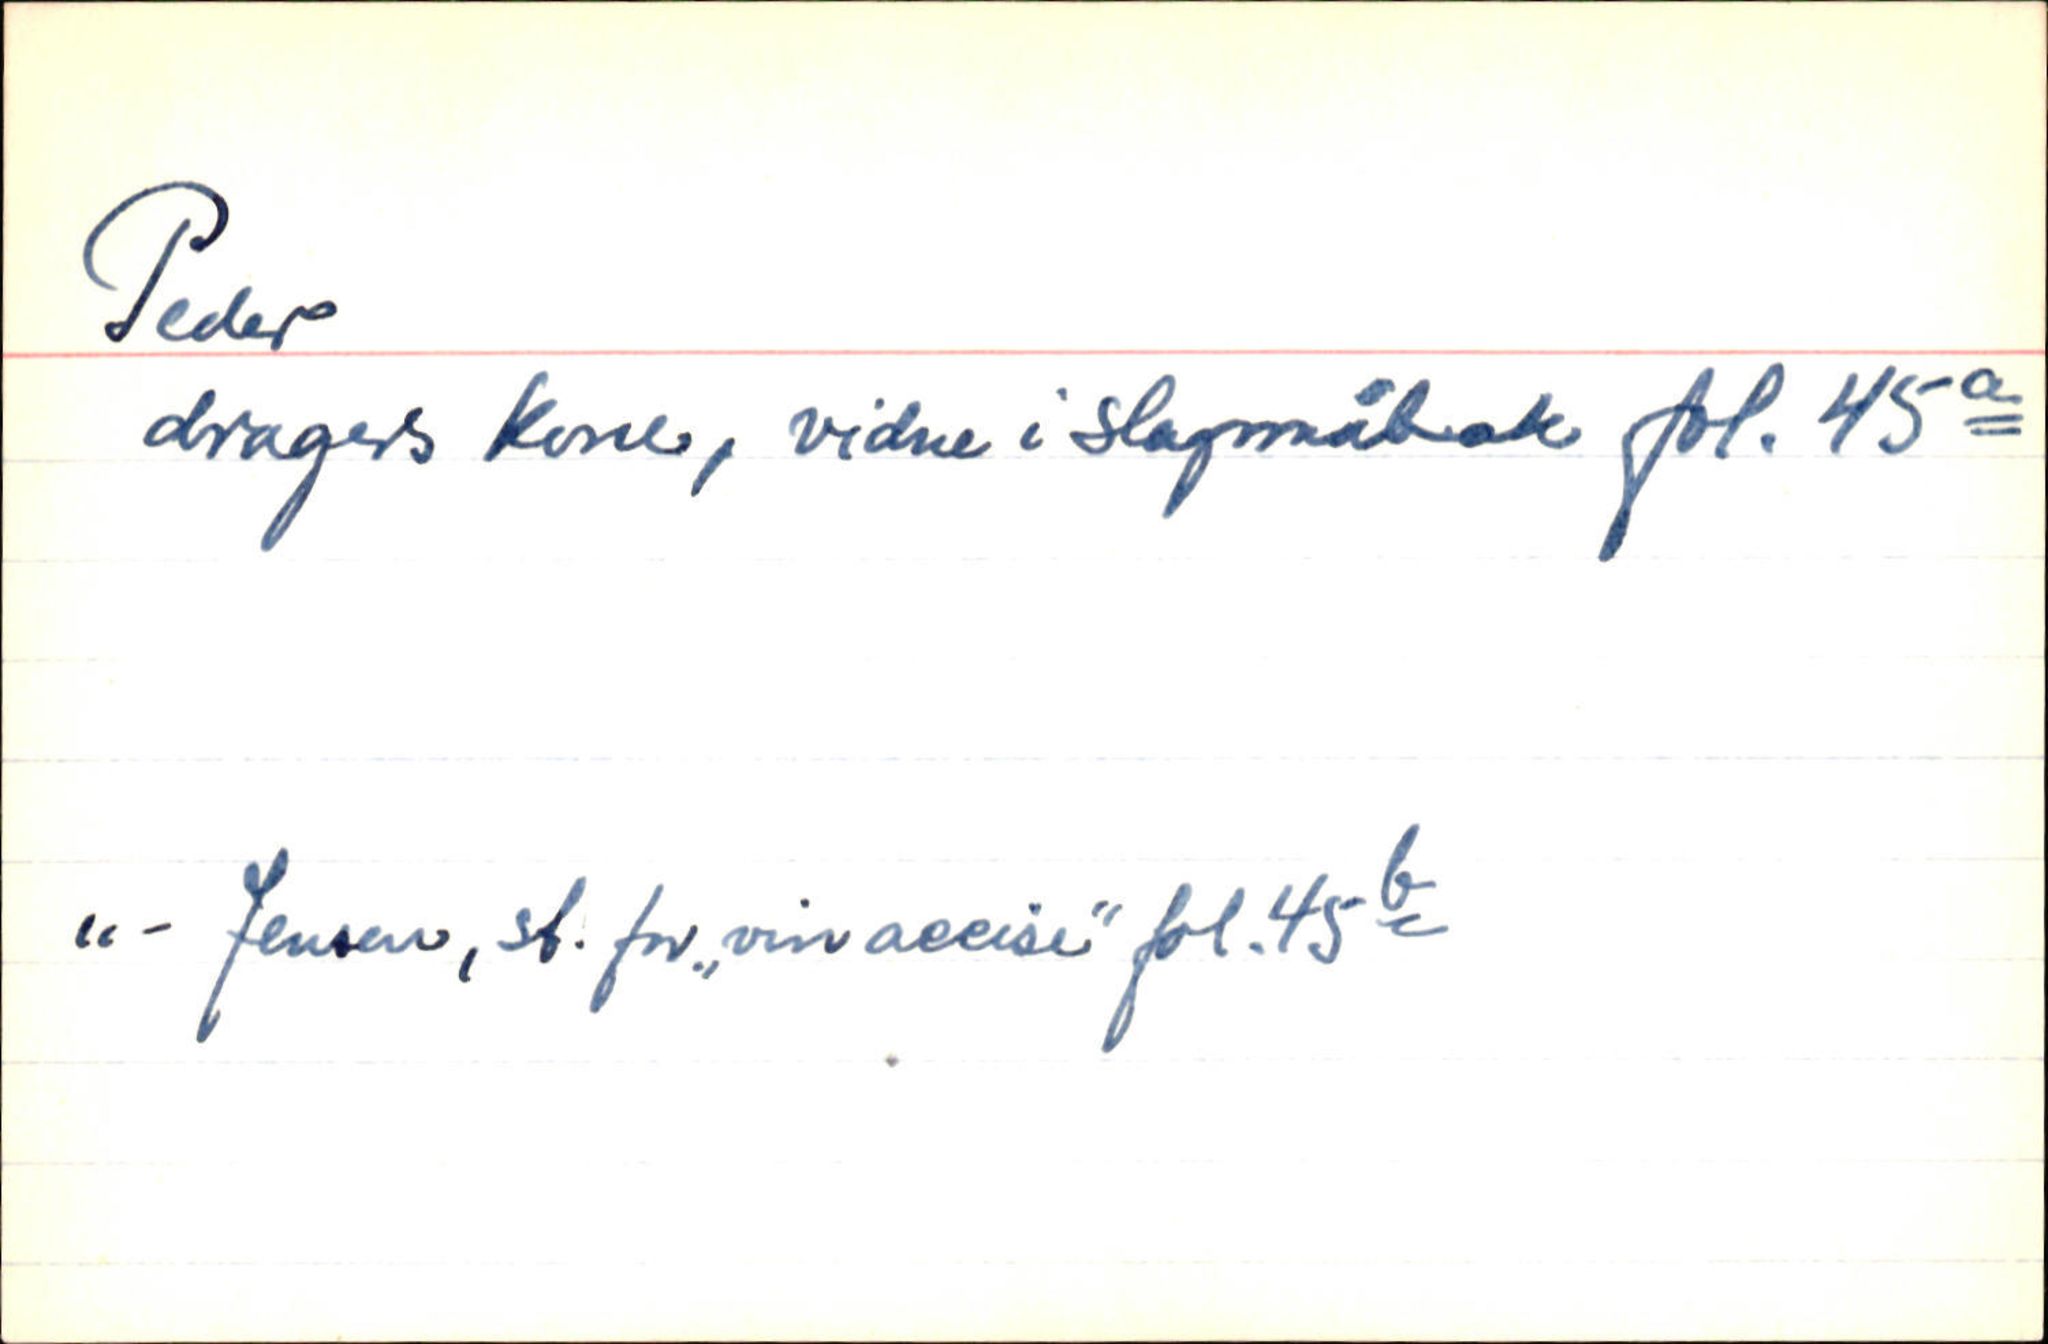 Peder
dragers kone, vidne i slagmålsak fol. 45a
"- Jensen, st. for „vin accise" fol. 45b